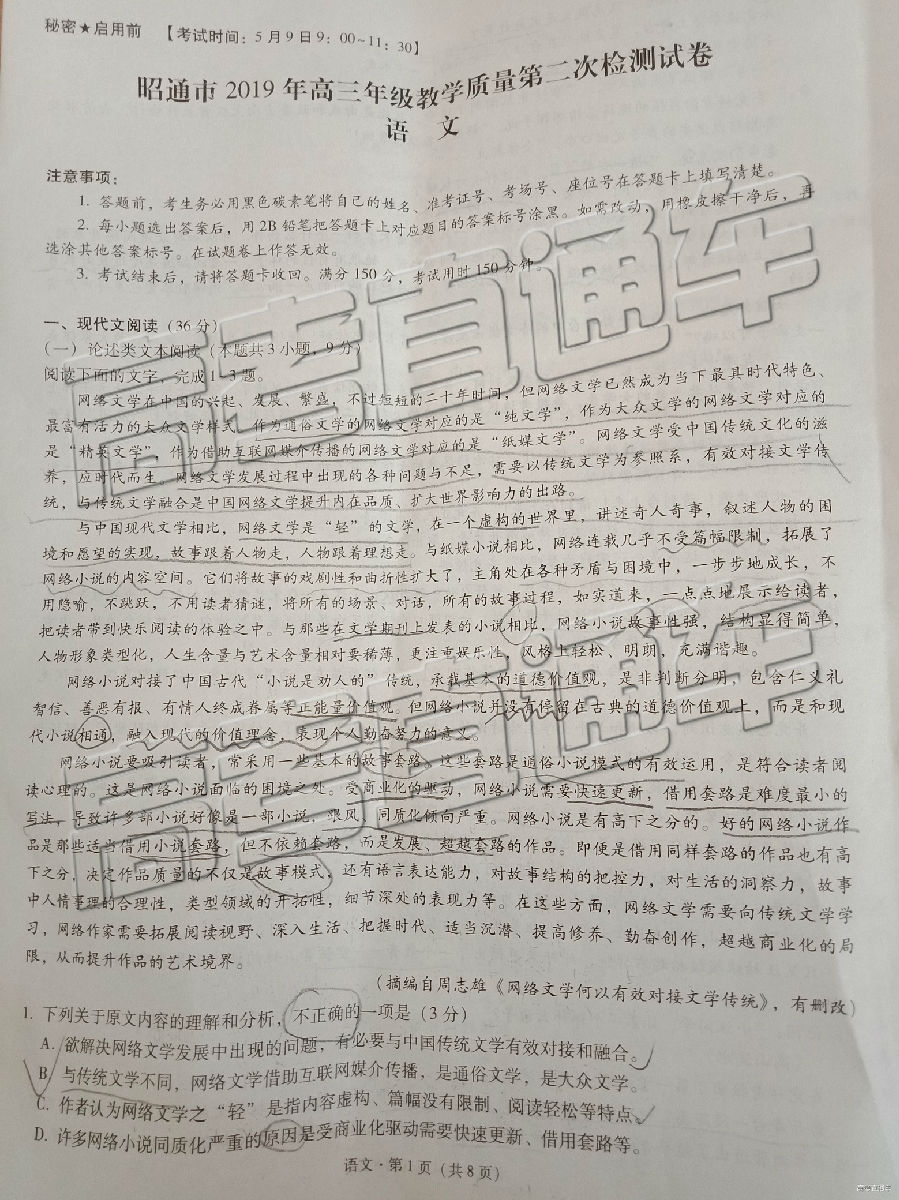 秘密★启用前 【考试时间：5月9日9：00~11：30】
昭通市2019年高三年级教学质量第二次检测试卷
语 文
注意事项：
1. 答题前，考生务必用黑色碳素笔将自己的姓名、准考证号、考场号、座位号在答题卡上填写清楚。
2. 每小题选出答案后，用2B铅笔把答题卡上对应题目的答案标号涂黑。如需改动，用橡皮擦干净后，再
选涂其他答案标号。在试题卷上作答无效。
3. 考试结束后，请将答题卡收回。满分150分，考试用时150分钟。
一、现代文阅读（36分）
（一）论述类文本阅读（本题共3小题，9分）
阅读下面的文字，完成1~3题。
网络文学在中国的兴起、发展、繁盛，不过短短的二十年时间，但网络文学已然成为当下最具时代特色、
最富有活力的大众文学样式。作为通俗文学的网络文学对应的是“纯文学”，作为大众文学的网络文学对应的
是“精英文学”，作为借助互联网媒介传播的网络文学对应的是“纸媒文学”。网络文学受中国传统文化的滋
养，应时代而生。网络文学发展过程中出现的各种问题与不足，需要以传统文学为参照系，有效对接文学传
统，与传统文学融合是中国网络文学提升内在品质、扩大世界影响力的出路。
与中国现代文学相比，网络文学是“轻”的文学，在一个虚构的世界里，讲述奇人奇事，叙述人物的困
境和愿望的实现，故事跟着人物走，人物跟着理想走。与纸媒小说相比，网络连载几乎不受篇幅限制，拓展了
网络小说的内容空间。它们将故事的戏剧性和曲折性扩大了，主角处在各种矛盾与困境中，一步步地成长，不
用隐喻，不跳跃，不用读者猜谜，将所有的场景、对话，所有的故事过程，如实道来，一点点地展示给读者，
把读者带到快乐阅读的体验之中。与那些在文学期刊上发表的小说相比，网络小说故事性强，结构显得简单，
人物形象类型化，人生含量与艺术含量相对要稀薄，更注重娱乐性，风格上轻松、明朗，充满谐趣。
网络小说对接了中国古代“小说是劝人的”传统，承载基本的道德价值观，是非判断分明，包含仁义礼
智信、善恶有报、有情人终成眷属等正能量价值观。但网络小说并没有停留在古典的道德价值观上，而是和现
代小说相通，融入现代的价值理念，表现个人勤奋努力的意义。
网络小说要吸引读者，常采用一些基本的故事套路，这些套路是通俗小说模式的有效运用，是符合读者阅
读心理的。这是网络小说面临的困境之处。受商业化的驱动，网络小说需要快速更新，借用套路是难度最小的
写法，导致许多部小说好像是一部小说，跟风、同质化倾向严重。网络小说是有高下之分的。好的网络小说作
品是那些适当借用小说套路，但不依赖套路，而是发展、超越套路的作品。即便是借用同样套路的作品也有高
下之分，决定作品质量的不仅是故事模式，还有语言表达能力，对故事结构的把控力，对生活的洞察力，故事
中人情事理的合理性，类型领域的开拓性，细节深处的表现力等。在这些方面，网络文学需要向传统文学学
习，网络作家需要拓展阅读视野、深入生活、把握时代、适当沉潜、提高修养、勤奋创作，超越商业化的局
限，从而提升作品的艺术境界。
（摘编自周志雄《网络文学何以有效对接文学传统》，有删改）
1. 下列关于原文内容的理解和分析，不正确的一项是（3分）
A. 欲解决网络文学发展中出现的问题，有必要与中国传统文学有效对接和融合。
B. 与传统文学不同，网络文学借助互联网媒介传播，是通俗文学，是大众文学。
C. 作者认为网络文学之“轻”是指内容虚构、篇幅没有限制、阅读轻松等特点。
D. 许多网络小说同质化严重的原因是受商业化驱动需要快速更新、借用套路等。
语文·第1页（共8页）
高考直通车
高考直通车
高考直通车